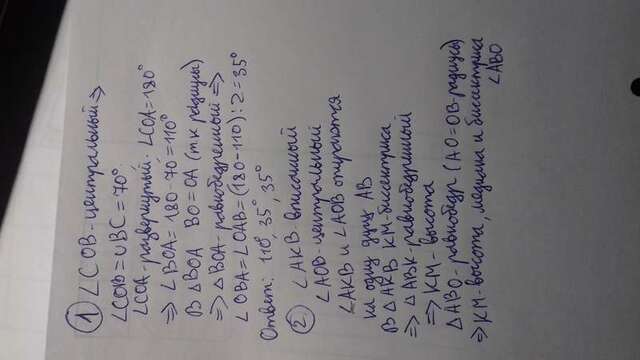 1) ∠COB-центральный ⇒
∠COB = ∪BC = 70°.
∠COA-развернутый. ∠COA = 180°
⇒ ∠BOA = 180-70 = 110°
В △BOA BO = OA (т к радиусы)
⇒ △BOA-равнобедренный ⇒
∠OBA = ∠OAB = (180-110):2 = 35°
Ответ: 110° 35°, 35°
2) ∠AKB-вписанный
∠AOB-центральный
∠AKB и ∠AOB опираются
на одну дугу AB
В △AKB KM-биссектриса
⇒ △ABK-равнобедренный
⇒ KM-высота
△ABO-равнобедр (AO=OB-радиусы)
⇒ KM-высота, медиана и биссектриса
∠ABO